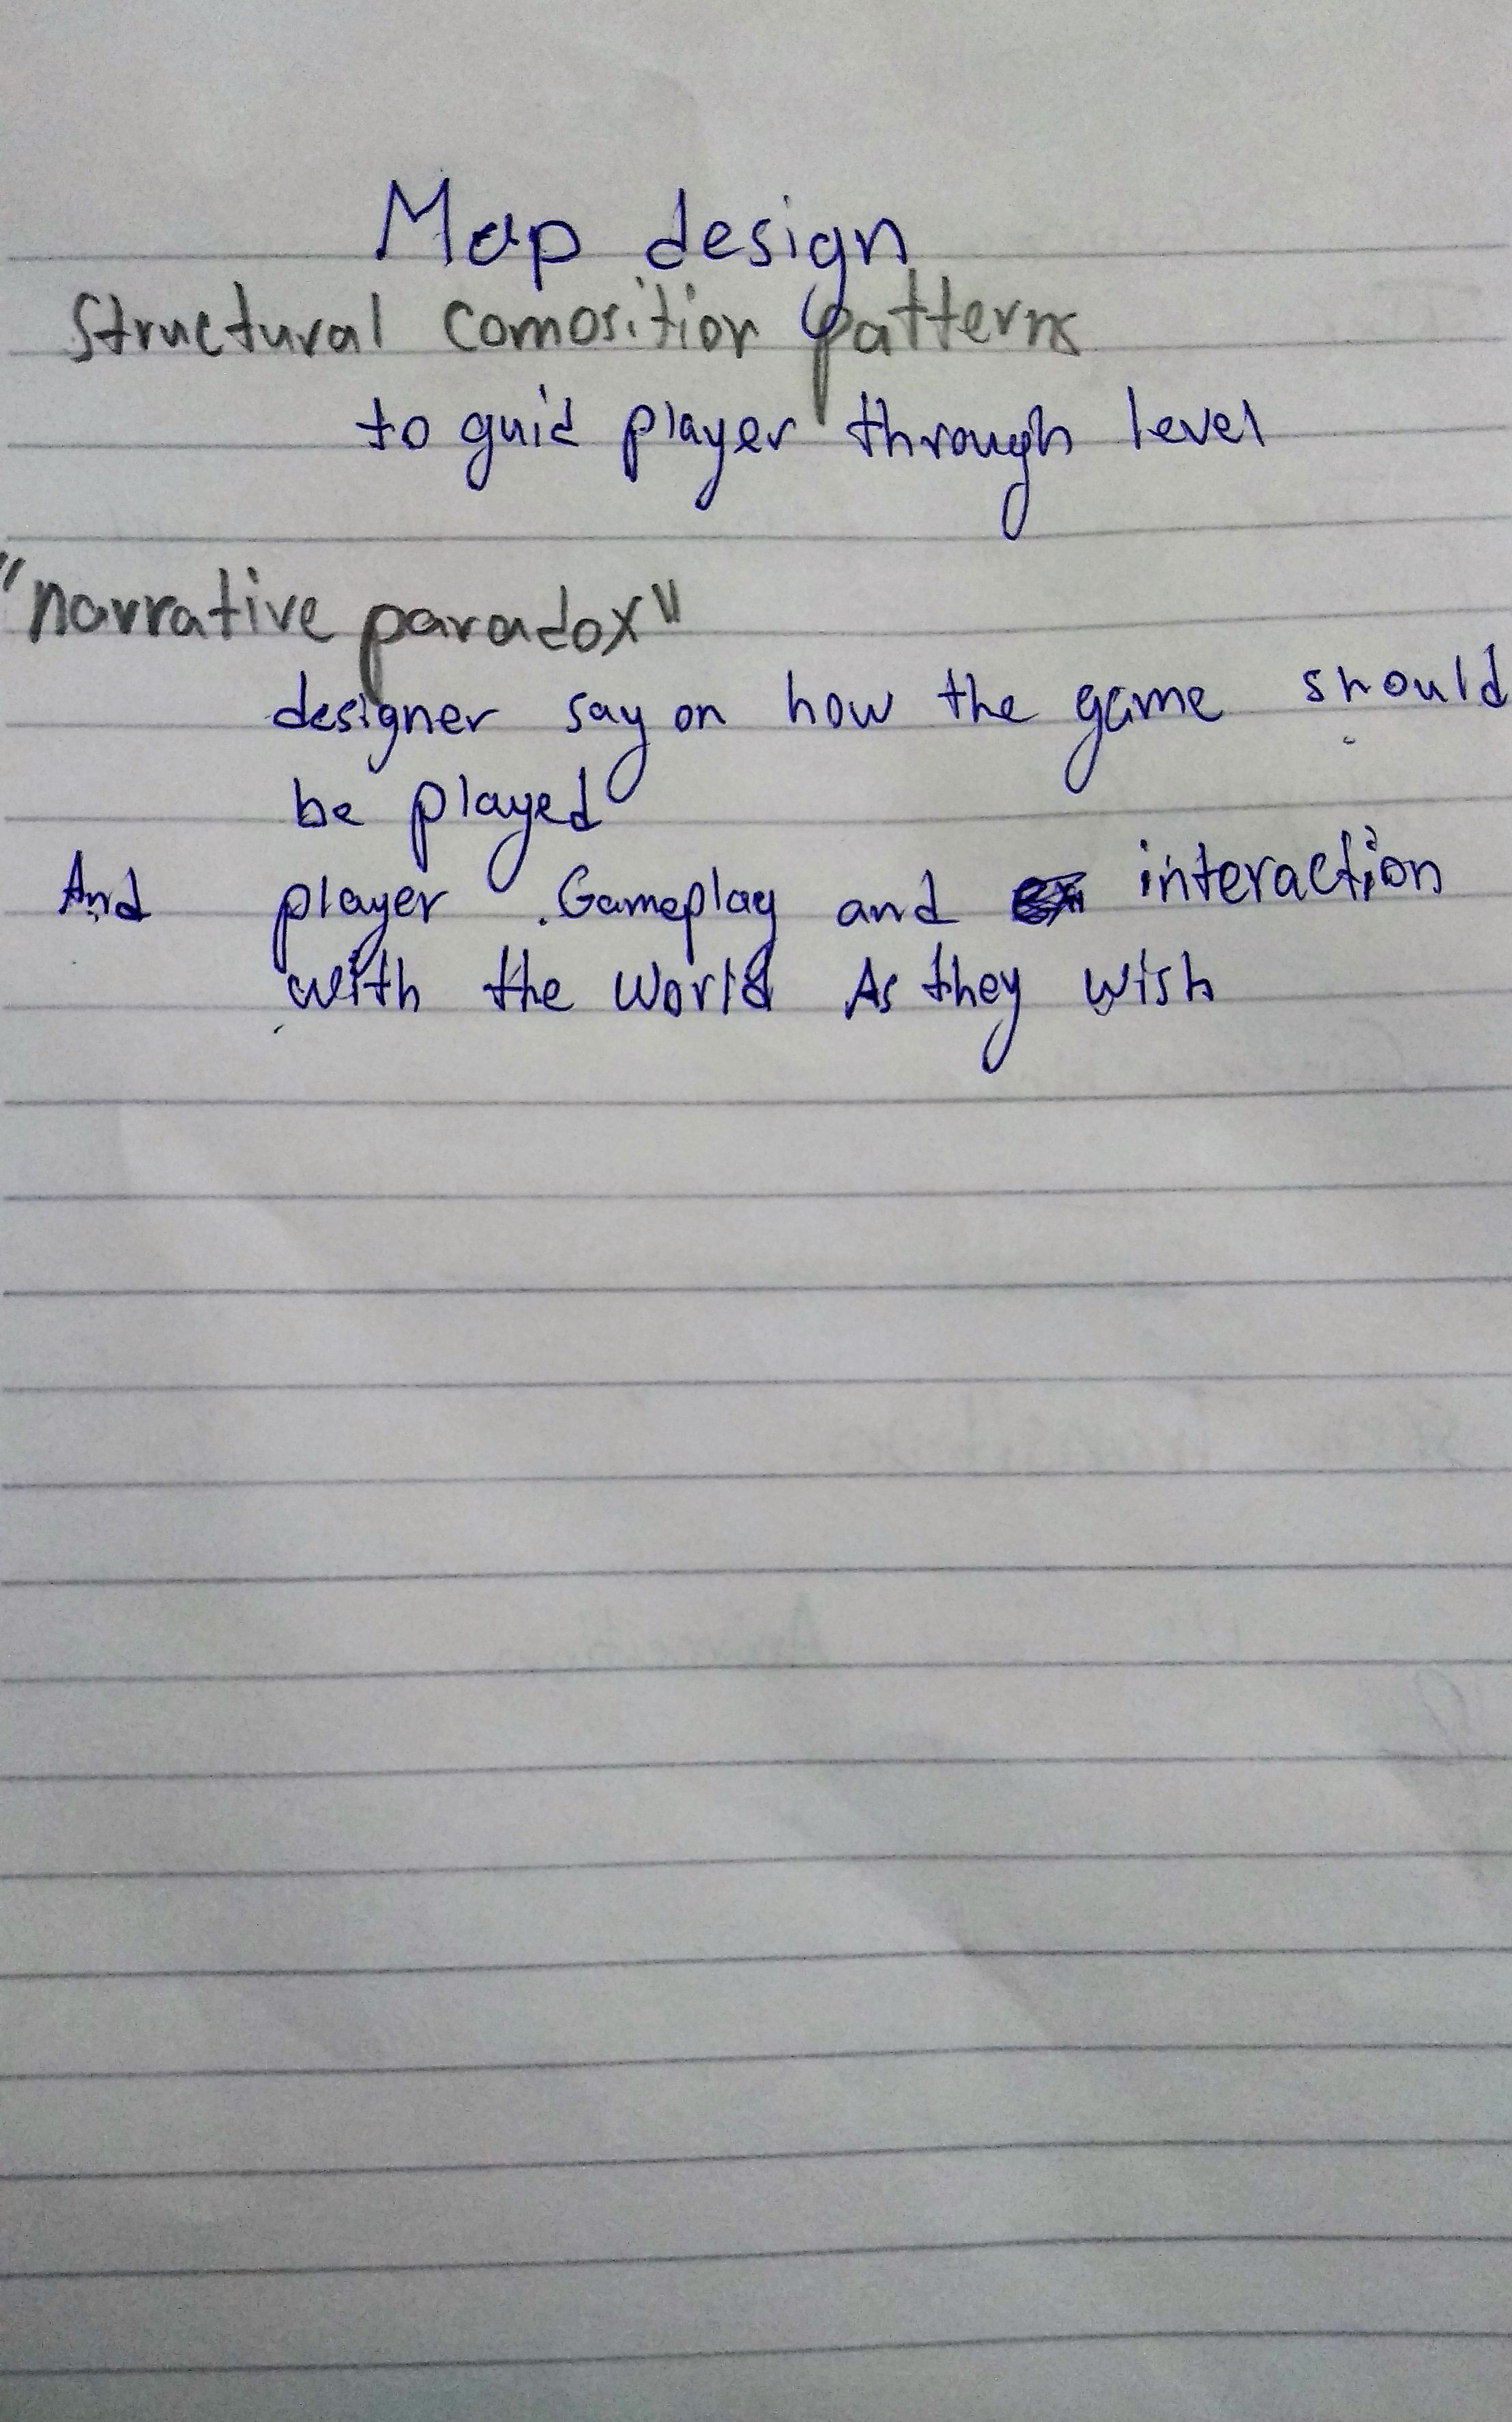 Map design
Structural comosition patterns
to guid player through level
"narrative paradox"
designer say on how the game should
be played
And player .Gameplay and interaction
with the world As they wish